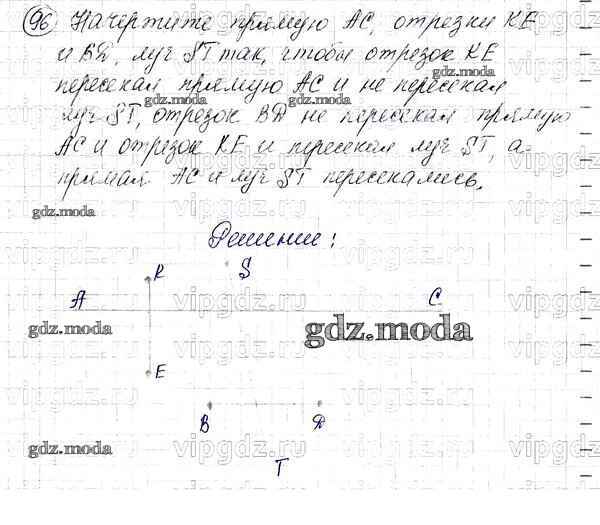 96 Начертите прямую AC, отрезки KE
и BD, луч ST так, чтобы отрезок KE
gdz.moda gdz.moda
пересекал прямую AC и не пересекал
gdz.moda gdz.moda
луч ST, отрезок BD не пересекал прямую
AC и отрезок KE и пересекал луч ST, а
прямая AC и луч ST пересекались.
gdz.moda
Решение:
K S
A C
gdz.moda gdz.moda
E
B D
gdz.moda
T
vipgdz.ru